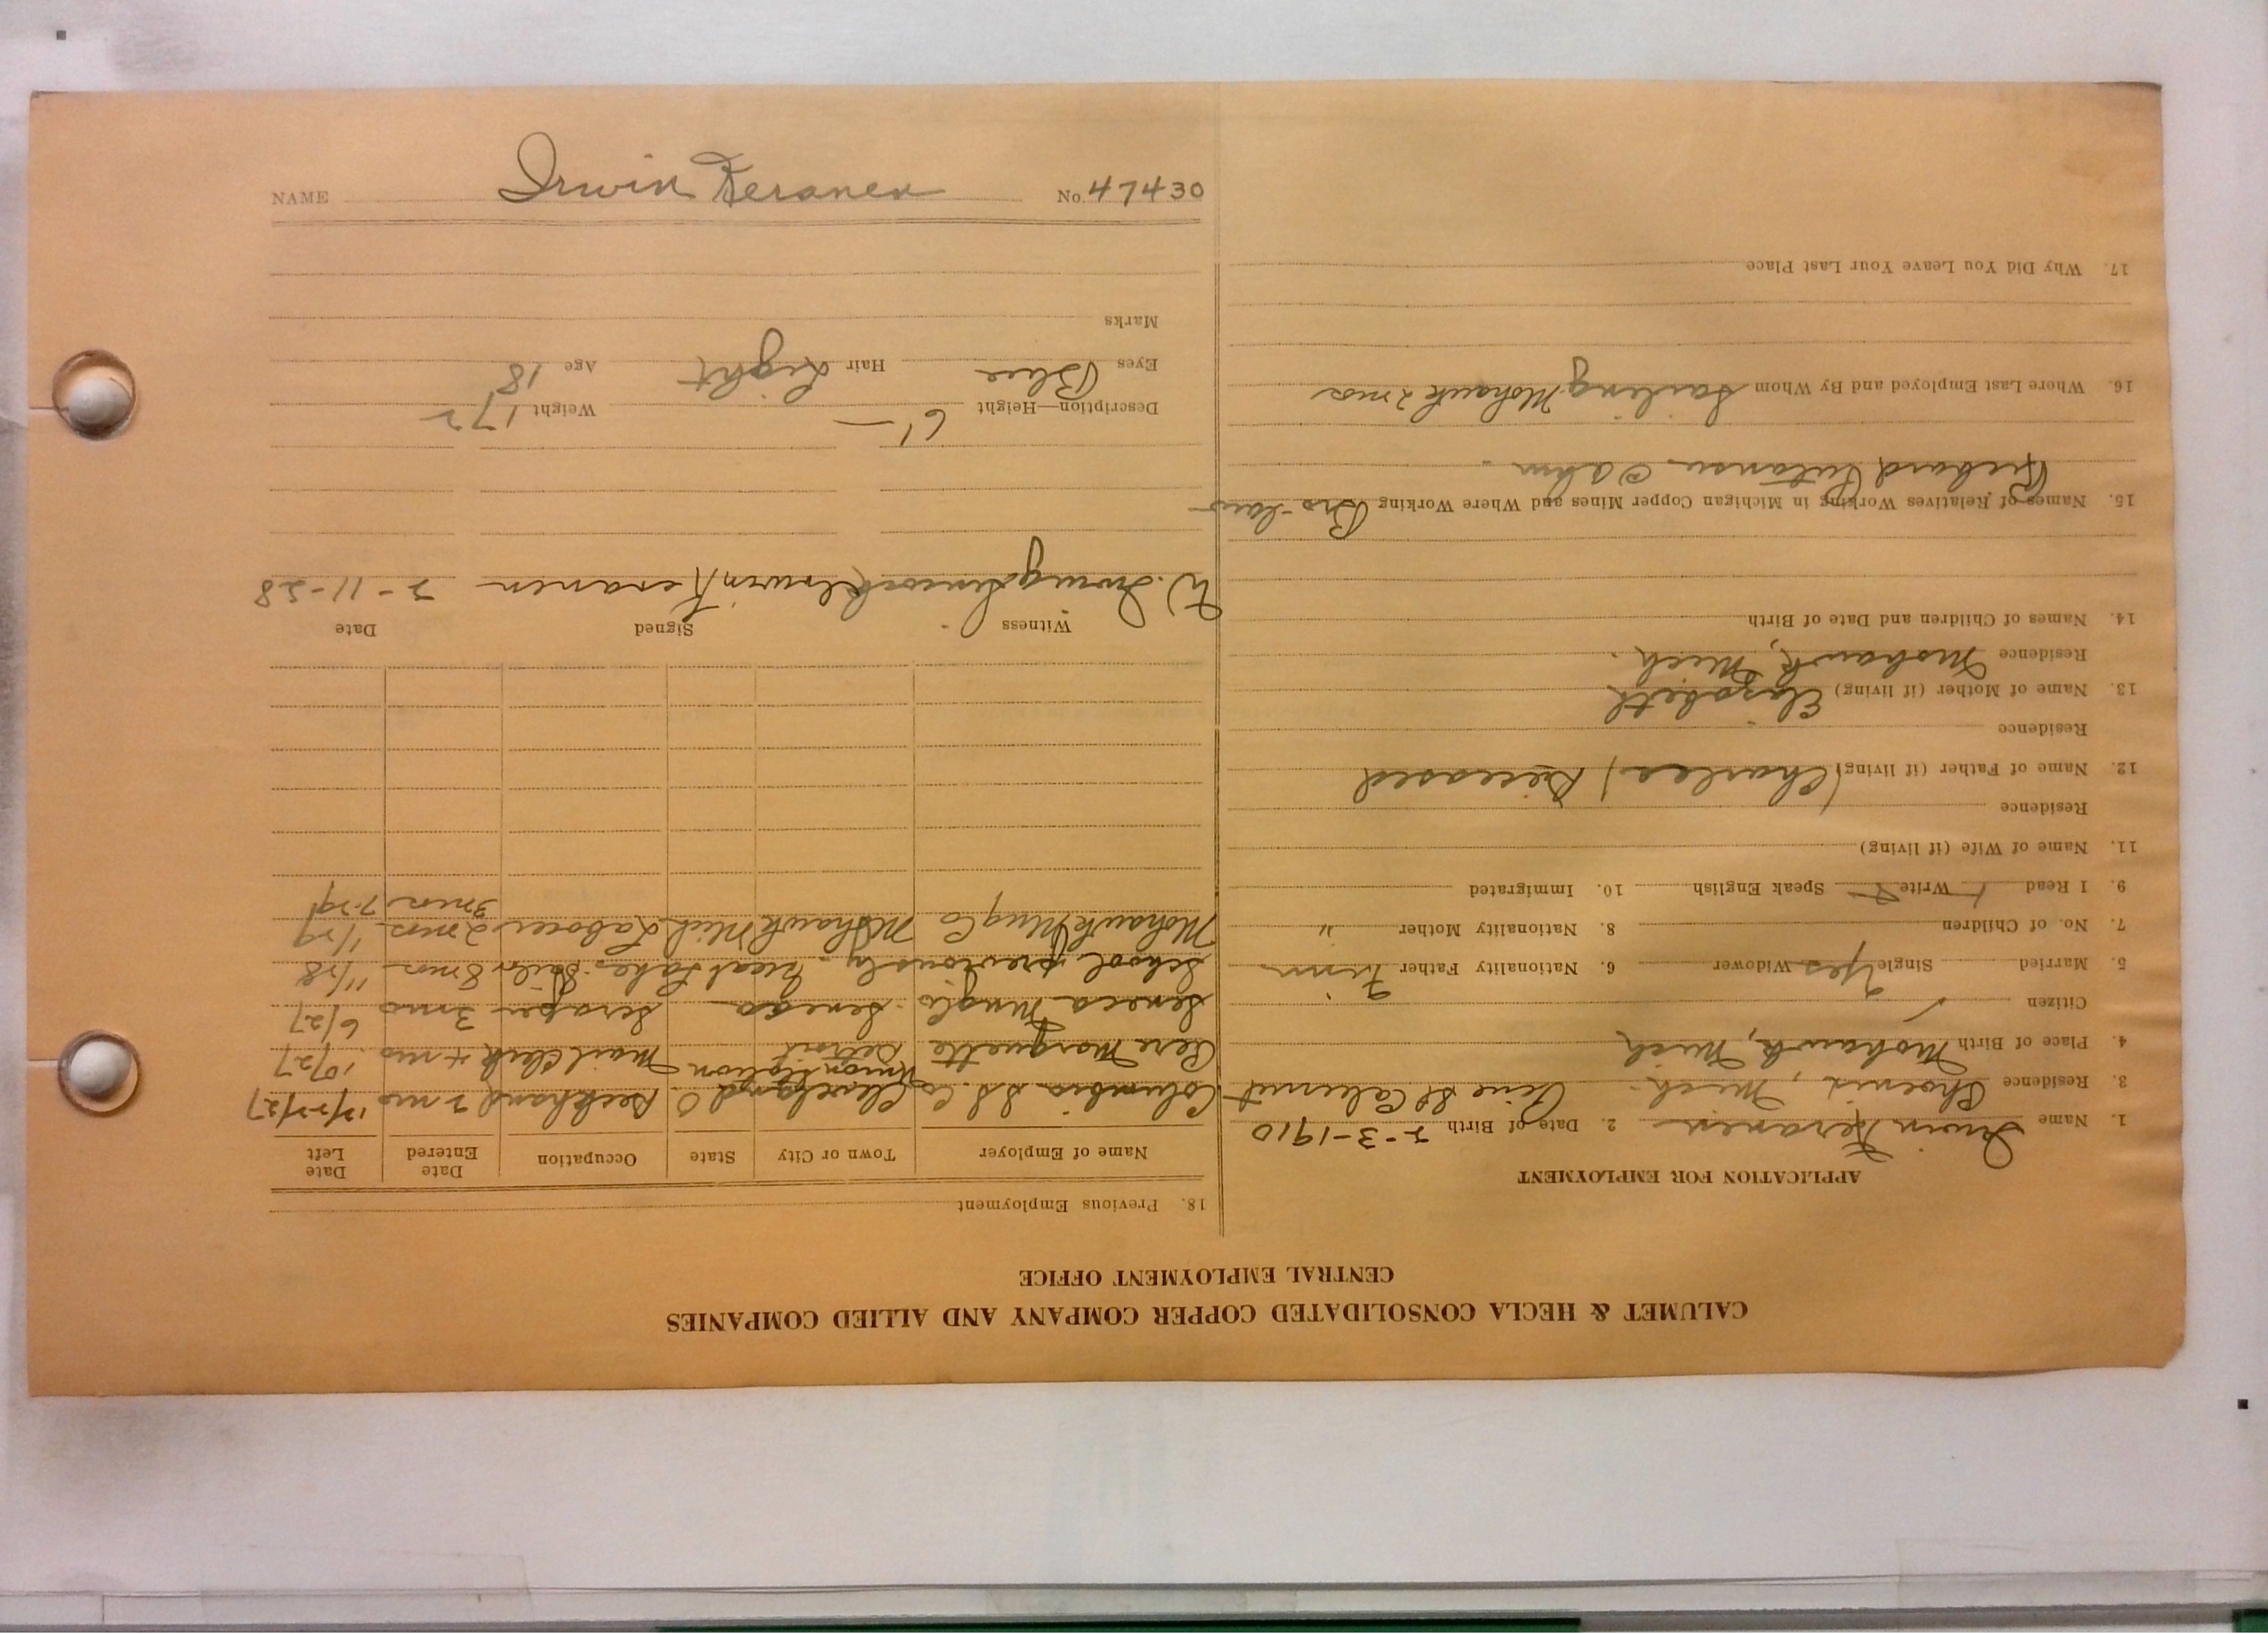 CALUMET & HECLA CONSOLIDATED COPPER COMPANY AND ALLIED COMPANIES
CENTRAL EMPLOYMENT OFFICE
APPLICATION FOR EMPLOYMENT
1. Name Irwin Keranen 2. Date of Birth 2-3-1910
3. Residence Phoenix, Mich. Pine St Calumet
4. Place of Birth Mohawk, Mich
Citizen ✓
5. Married Single Yes Widower 6. Nationality Father Finn
7. No. of Children 8. Nationality Mother "
9. I Read Write Speak English 10. Immigrated
11. Name of Wife (if living)
Residence
12. Name of Father (if living) (Charles) Deceased
Residence
13. Name of Mother (if living) Elizabeth
Residence Mohawk, Mich.
14. Names of Children and Date of Birth
15. Names of Relatives Working in Michigan Copper Mines and Where Working Bro-law
Richard
16. Where Last Employed and By Whom Sailing. Mohawk 2 mos
17. Why Did You Leave Your Last Place
18. Previous Employment
Name of Employer Town or City State Occupation Date Entered Date Left
Columbia S.S. Co Cleveland O. Deckhand 2 mo 12/22/27
Pere Marquette Union Station Detroit Mail Clerk 4 mo 10/27
Seneca Mng Co Seneca Scraper 3 mo 6/27
School previously - Great Lakes Sailor 8 mos 11/28
Mohawk Mng Co Mohawk Mich Laborer 2 mos 1/29
3 mos 7-29
Witness Signed Date
W. Irwin Keranen 2-11-28
Description—Height 6'— Weight 172
Eyes Blue Hair Light Age 18
Marks
NAME Irwin Keranen No. 47430